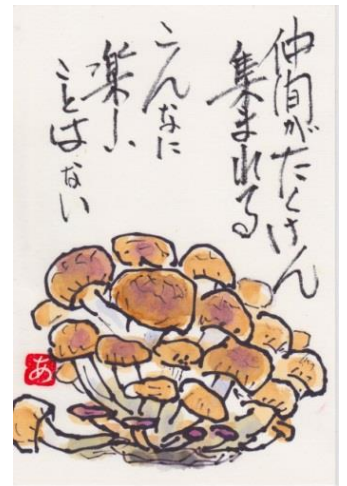 仲間がたくさん
集まれる
こんなに
楽しい
ことはない
あ